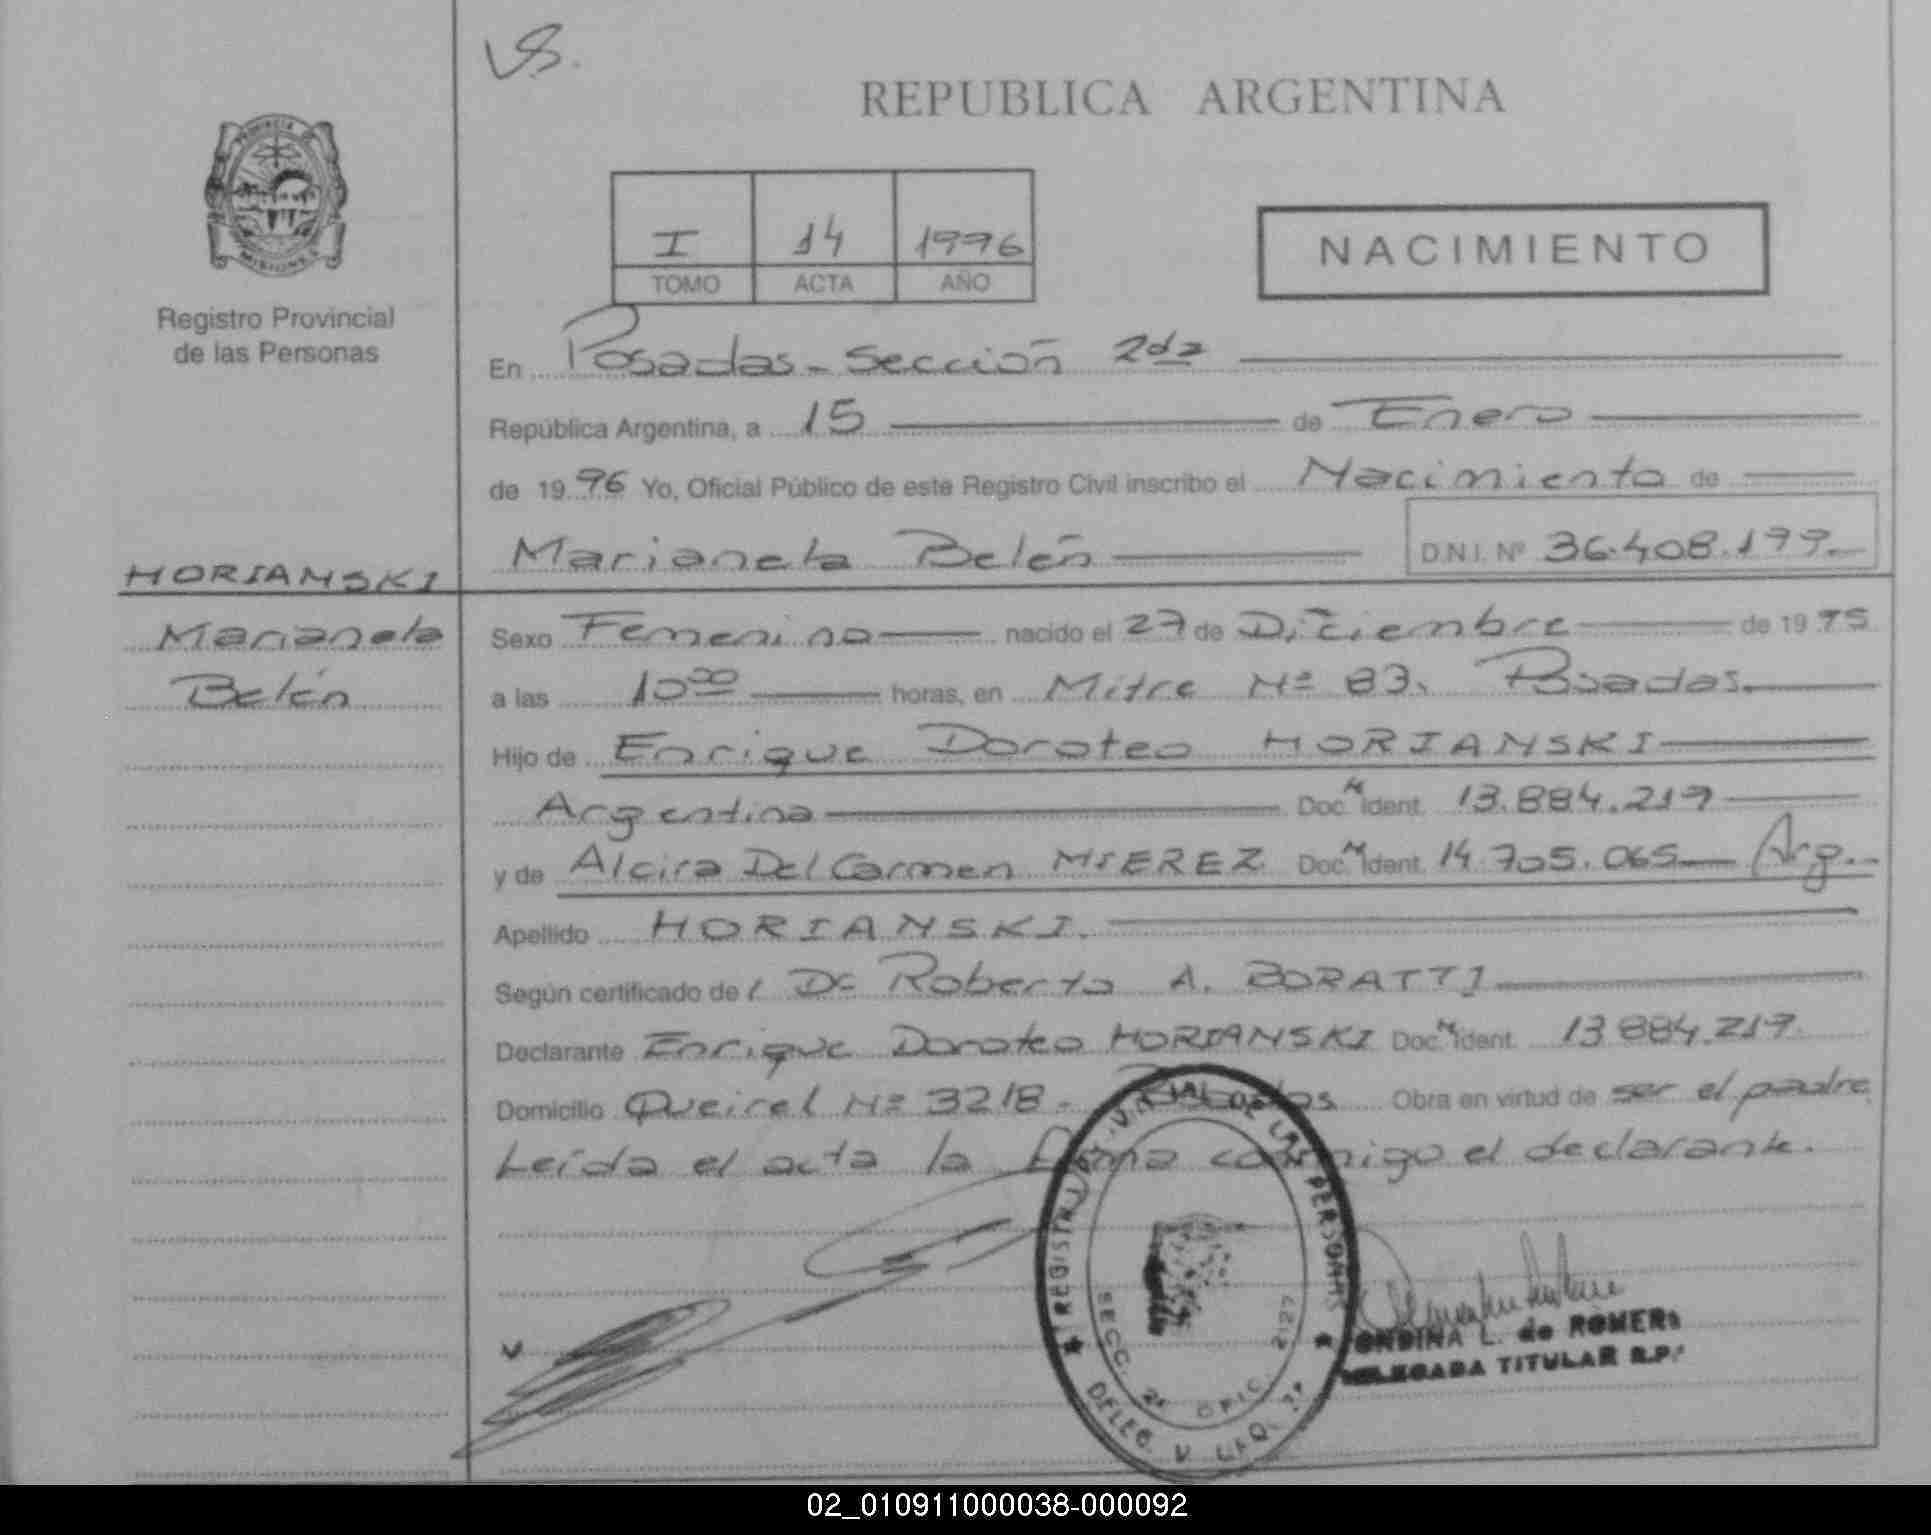 VS.
REPUBLICA ARGENTINA
PROVINCIA
MISIONES
Registro Provincial
de las Personas
I 14 1996
TOMO ACTA AÑO
NACIMIENTO
En Posadas - Sección 2da
República Argentina, a 15 de Enero
de 1996 Yo, Oficial Público de este Registro Civil inscribo el Nacimiento de
Marianela Belén D.N.I. Nº 36.408.199.
HORIANSKI
Marianela
Belén
Sexo Femenino nacido el 27 de Diciembre de 1995
a las 10 00 horas, en Mitre Nº 83. Posadas.
Hijo de Enrique Doroteo HORIANSKI
Argentina Doc. N Ident. 13.884.219
y de Alcira Del Carmen MIEREZ Doc. N Ident. 14.705.065 Arg.
Apellido HORIANSKI.
Según certificado de / Dr Roberto A. BORATTI
Declarante Enrique Doroteo HORIANSKI Doc. N Ident. 13 884.219.
Domicilio Queirel Nº 3218 - Posadas Obra en virtud de ser el padre
Leída el acta la firma conmigo el declarante.
DE LAS PERSONAS
SECC. 2ª OFIC.
DELEG.
ONDINA L. de ROMERO
DELEGADA TITULAR R.P.
02_010911000038-000092